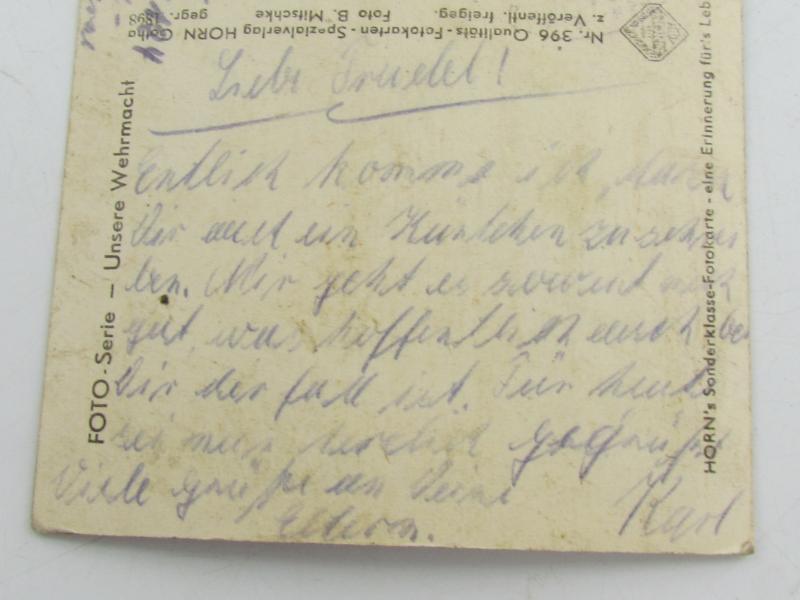 Nr. 396 Qualitäts-Fotokarten-Spezialverlag HORN Gotha gegr. 1898
z. Veröffentl. freigeg. Foto B. Mitschke
FOTO-Serie – Unsere Wehrmacht
HORN's Sonderklasse-Fotokarte - eine Erinnerung für's Leb
Liebe Trudel!
Entlich komme ich dazu
Dir auch ein Kärtchen zu schrei
ben. Mir geht es soweit noch
gut, was hoffentlich auch bei
Dir der fall ist. Für heute
sei nun herzlich gegrüßt
Viele Grüße an Deine Karl
Eltern.